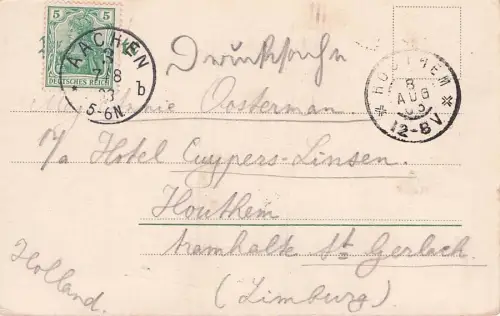 5 5
DEUTSCHES REICH
AACHEN
7 8
03
5-6N.
b
Drucksache
HOUTHEM
8
AUG
03
12-8V
Oosterman
p/a Hotel Cuypers-Linsen.
Houthem
tramhalte St Gerlach
(Limburg)
Holland.